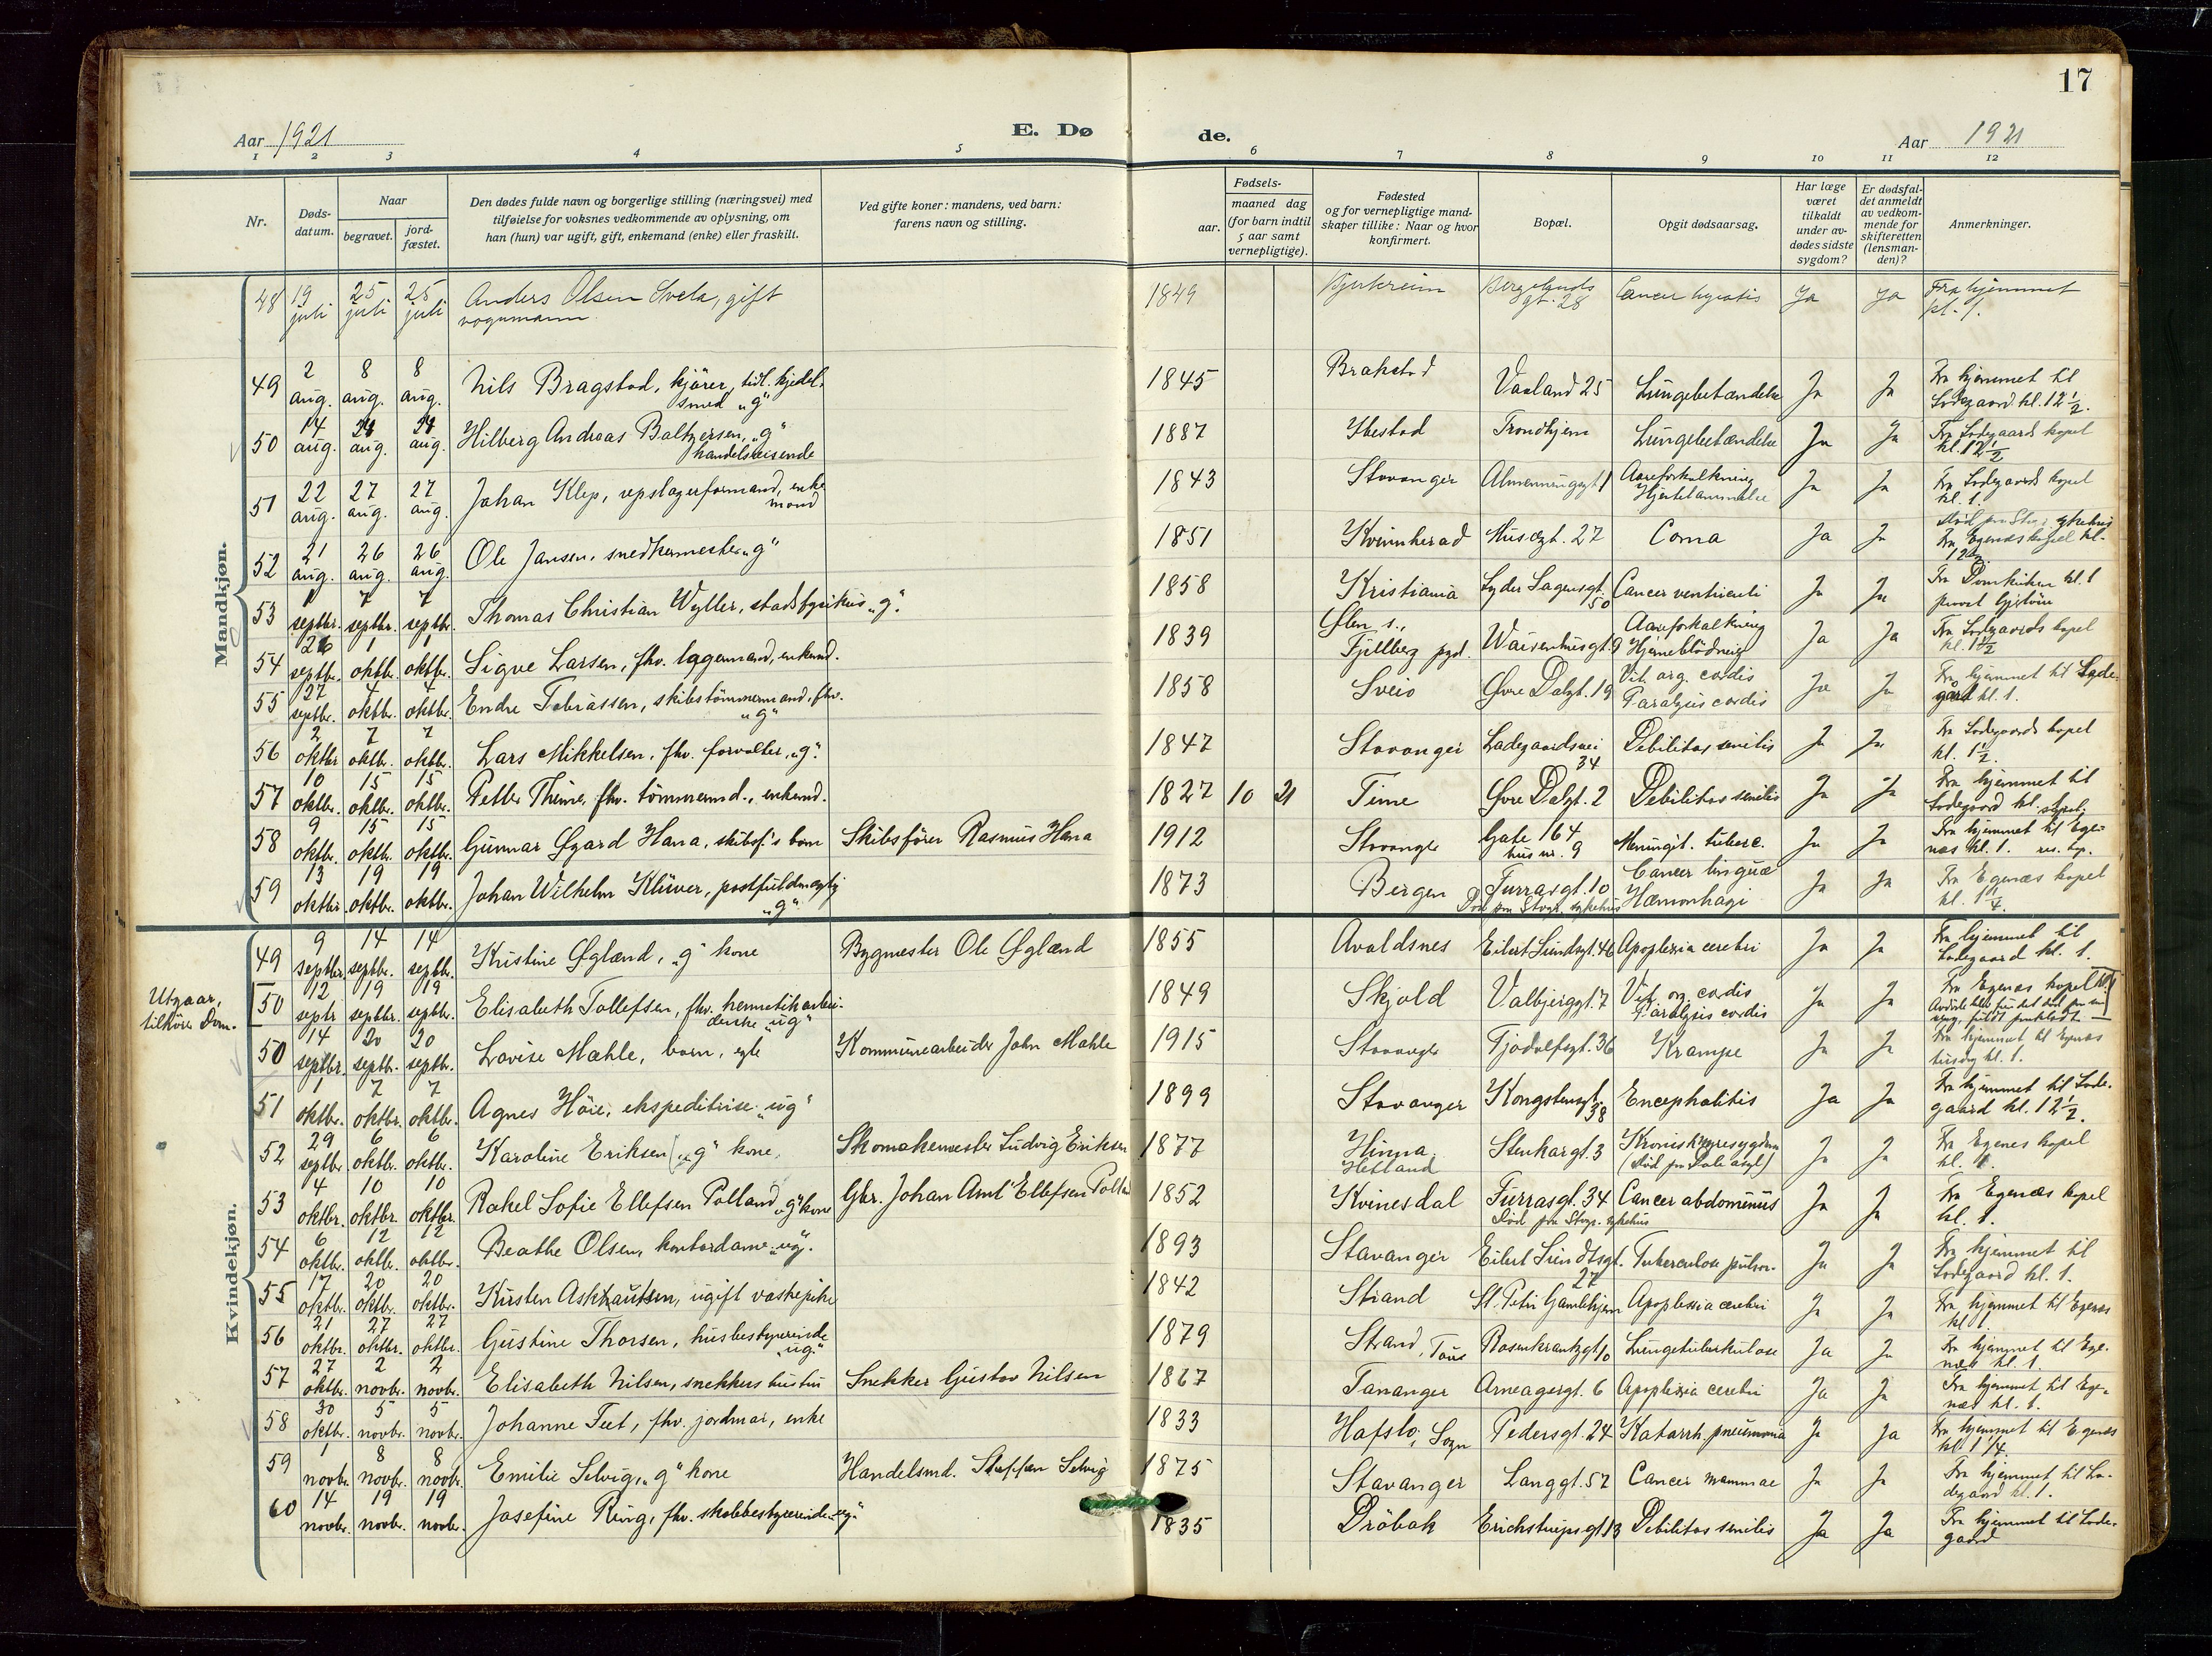 17
Aar 1921
E. Dø de.
Aar 1921
1 2 3 4 5 6 7 8 9 10 11 12
Nr.
Døds-
datum.
Naar
begravet.
jord-
fæstet.
Den dødes fulde navn og borgerlige stilling (næringsvei) med
tilføielse for voksnes vedkommende av oplysning, om
han (hun) var ugift, gift, enkemand (enke) eller fraskilt.
Ved gifte koner: mandens, ved barn:
farens navn og stilling.
aar.
Fødsels-
maaned dag
(for barn indtil
5 aar samt
vernepligtige).
Fødested
og for vernepligtige mand-
skaper tillike: Naar og hvor
konfirmert.
Bopæl.
Opgit dødsaarsag.
Har læge
været
tilkaldt
under av-
dødes sidste
sygdom?
Er dødsfal-
det anmeldt
av vedkom-
mende for
skifteretten
(lensman-
den)?
Anmerkninger.
Mandkjøn.
48 19 juli 25 juli 25 juli Anders Olsen Svela, gift vognmann 1849 Bjerkreim Bergelands gt. 28 Cancer hepatis Ja Ja Fra hjemmet kl. 1.
49 2 aug. 8 aug. 8 aug. Nils Bragstad, kjører, tidl. kjedel- smed „g" 1845 Brakstad Vaaland 25 Lungebetændelse Ja Ja Fra hjemmet til Lodegaard kl. 12½.
50 14 aug. aug. aug. Hilberg Andreas Baltzersen, „g" handelsreisende 1887 Ibestad Trondhjem Lungebetændelse Ja Ja Fra Lodegaards kapel kl. 12½
51 22 aug. 27 aug. 27 aug. Johan Klep, repslagerformand, enke mand 1843 Stavanger Almenningsgt. 1 Aareforkalkning Hjertelammelse Ja Ja Fra Lodegaards kapel kl. 1.
52 21 aug. 26 aug. 26 aug. Ole Jansen, snedkermester „g" 1851 Kvinnherad Musegt. 27 Coma Ja Ja Død paa Stvgr. sykehus Fra Egenæs kapel kl.
53 1 septbr. 7 septbr. 7 septbr. Thomas Christian Wyller, stadsfysikus „g". 1858 Kristiania Lyder Sagensgt. 50 Cancer ventriculi Ja Ja Fra Domkirken kl. 1
54 26 septbr. 1 oktbr. 1 oktbr. Sigve Larsen, fhv. lagermand, enkemd. 1839 Ølen s., Fjellberg pgd. Waisenhusgt. 9 Aareforkalkning Hjerneblødning Ja Ja Fra Lodegaards kapel kl. 1½
55 27 septbr. 4 oktbr. 4 oktbr. Endre Tobiassen, skibstømmermand, fhv. „g" 1858 Sveio Øvre Dalgt. 19 Vit. org. cordis Paralysis cordis Ja Ja Fra hjemmet til Lode- gård kl. 1.
56 2 oktbr 7 oktbr. 7 oktbr. Lars Mikkelsen, fhv. forvalter, „g". 1847 Stavanger Ladegaardsvei 34 Debilitas senilis Ja Ja Fra Lodegaards kapel kl. 1½.
57 10 oktbr. 15 oktbr. 15 oktbr. Petter Thime, fhv. tømmermd., enkemd. 1827 10 21 Time Øvre Dalgt. 2 Debilitas senilis Ja Ja Fra hjemmet til Lodegaard kl.
58 9 oktbr. 15 oktbr. 15 oktbr. Gunnar Øgard Hana, skibsf.'s barn Skibsfører Rasmus Hana 1912 Stavanger Gate 164 hus nr. 9 Meningit. tuberc. Ja Ja Fra hjemmet til Ege- næs kl. 1.
59 13 oktbr. 19 oktbr. 19 oktbr. Johan Wilhelm Klüwer, postfuldmægtig „g" 1873 Bergen Furrasgt. 10 Død paa Stvgr. sykehus Cancer linguæ Hæmorrhagi Ja Ja Fra Egenæs kapel kl. 1¼.
Kvindekjøn.
49 9 septbr. 14 septbr. 14 septbr. Kristine Øglænd, „g" kone Bygmester Ole Øglænd 1855 Avaldsnes Eilert Sundtsgt. 46 Apoplexia cerebri Ja Ja Fra hjemmet til Lodegaard kl. 1.
Utgaar, tilhører Dom.
50 12 septr 19 septbr. 19 septbr. Elisabeth Tollefsen, fhv. hermetikarbei- derske „ug" 1849 Skjold Valbjerggt. 7 Vit. org. cordis Paralysis cordis Ja Ja Fra Egenæs kapel
50 14 septbr. 20 septbr. 20 septbr. Lovise Mæhle, barn, egte Kommunearbeider John Mæhle 1915 Stavanger Tjodolfsgt. 36 Krampe Ja Ja Fra hjemmet til Egenæs tirsdag kl. 1.
51 1 oktbr. 7 oktbr. 7 oktbr. Agnes Höie, ekspeditrise „ug" 1899 Stavanger Kongstensgt. 38 Encephalitis Ja Ja Fra hjemmet til Lode- gaard kl. 12½.
52 29 septbr 6 oktbr. 6 oktbr. Karoline Eriksen „g" kone, Skomakermester Ludvig Eriksen 1877 Hinna Hetland Stenkargt. 3 Kronisk nyresygdom (Død paa Dale asyl) Ja Ja Fra Egenes kapel kl. 1.
53 4 oktbr. 10 oktbr. 10 oktbr. Rakel Sofie Ellefsen Polland „g" kone Gbr. Johan Aml Ellefsen Polland 1852 Kvinesdal Furrasgt. 34 Død paa Stvgr. sykehus Cancer abdominis Ja Ja Fra Egenæs kapel kl. 1.
54 6 oktbr. 12 oktbr. 12 oktbr. Beathe Olsen, kontordame „ug". 1893 Stavanger Eilert Sundtsgt. 27 Tuberculose pulm. Ja Ja Fra hjemmet til Lodegaard kl. 1.
55 17 oktbr. 20 oktbr. 20 oktbr. Kirsten Askhautsen, ugift vaskepike 1842 Strand St. Petri Gamlehjem Apoplexia cerebri Ja Ja Fra hjemmet til Egenæs kl 1.
56 21 oktbr. 27 oktbr. 27 oktbr. Gustine Thorsen, husbestyrerinde „ug" 1879 Strand, Tau Rosenkrantzgt 10 Lungetuberkulose Ja Ja Fra hjemmet til Ege- næs kl. 1.
57 27 oktbr. 2 novbr. 2 novbr. Elisabeth Nilsen, snekkers hustru Snekker Gustav Nilsen 1867 Tananger Arneagergt. 6 Apoplexia cerebri Ja Ja Fra hjemmet til Ege- næs kl. 1.
58 30 oktbr. 5 novbr. 5 novbr. Johanne Tut, fhv. jordmor, enke 1833 Hafslo, Sogn Pedersgt. 24 Katarrh. pneumonia Ja Ja Fra hjemmet til Egenæs kl 1 1/4.
59 1 novbr. 8 novbr. 8 novbr. Emilie Selvig, „g" kone Handelsmd. Steffen Selvig 1875 Stavanger Langgt. 57 Cancer mammae Ja Ja Fra hjemmet til Lo- degaard kl. 1.
60 14 novbr. 19 novbr. 19 novbr. Josefine Ring, fhv. skolebestyrerinde „ug" 1835 Dröbak Erichstrupsgt 13 Debilitas senilis Ja Ja Fra hjemmet til Lode- gaard